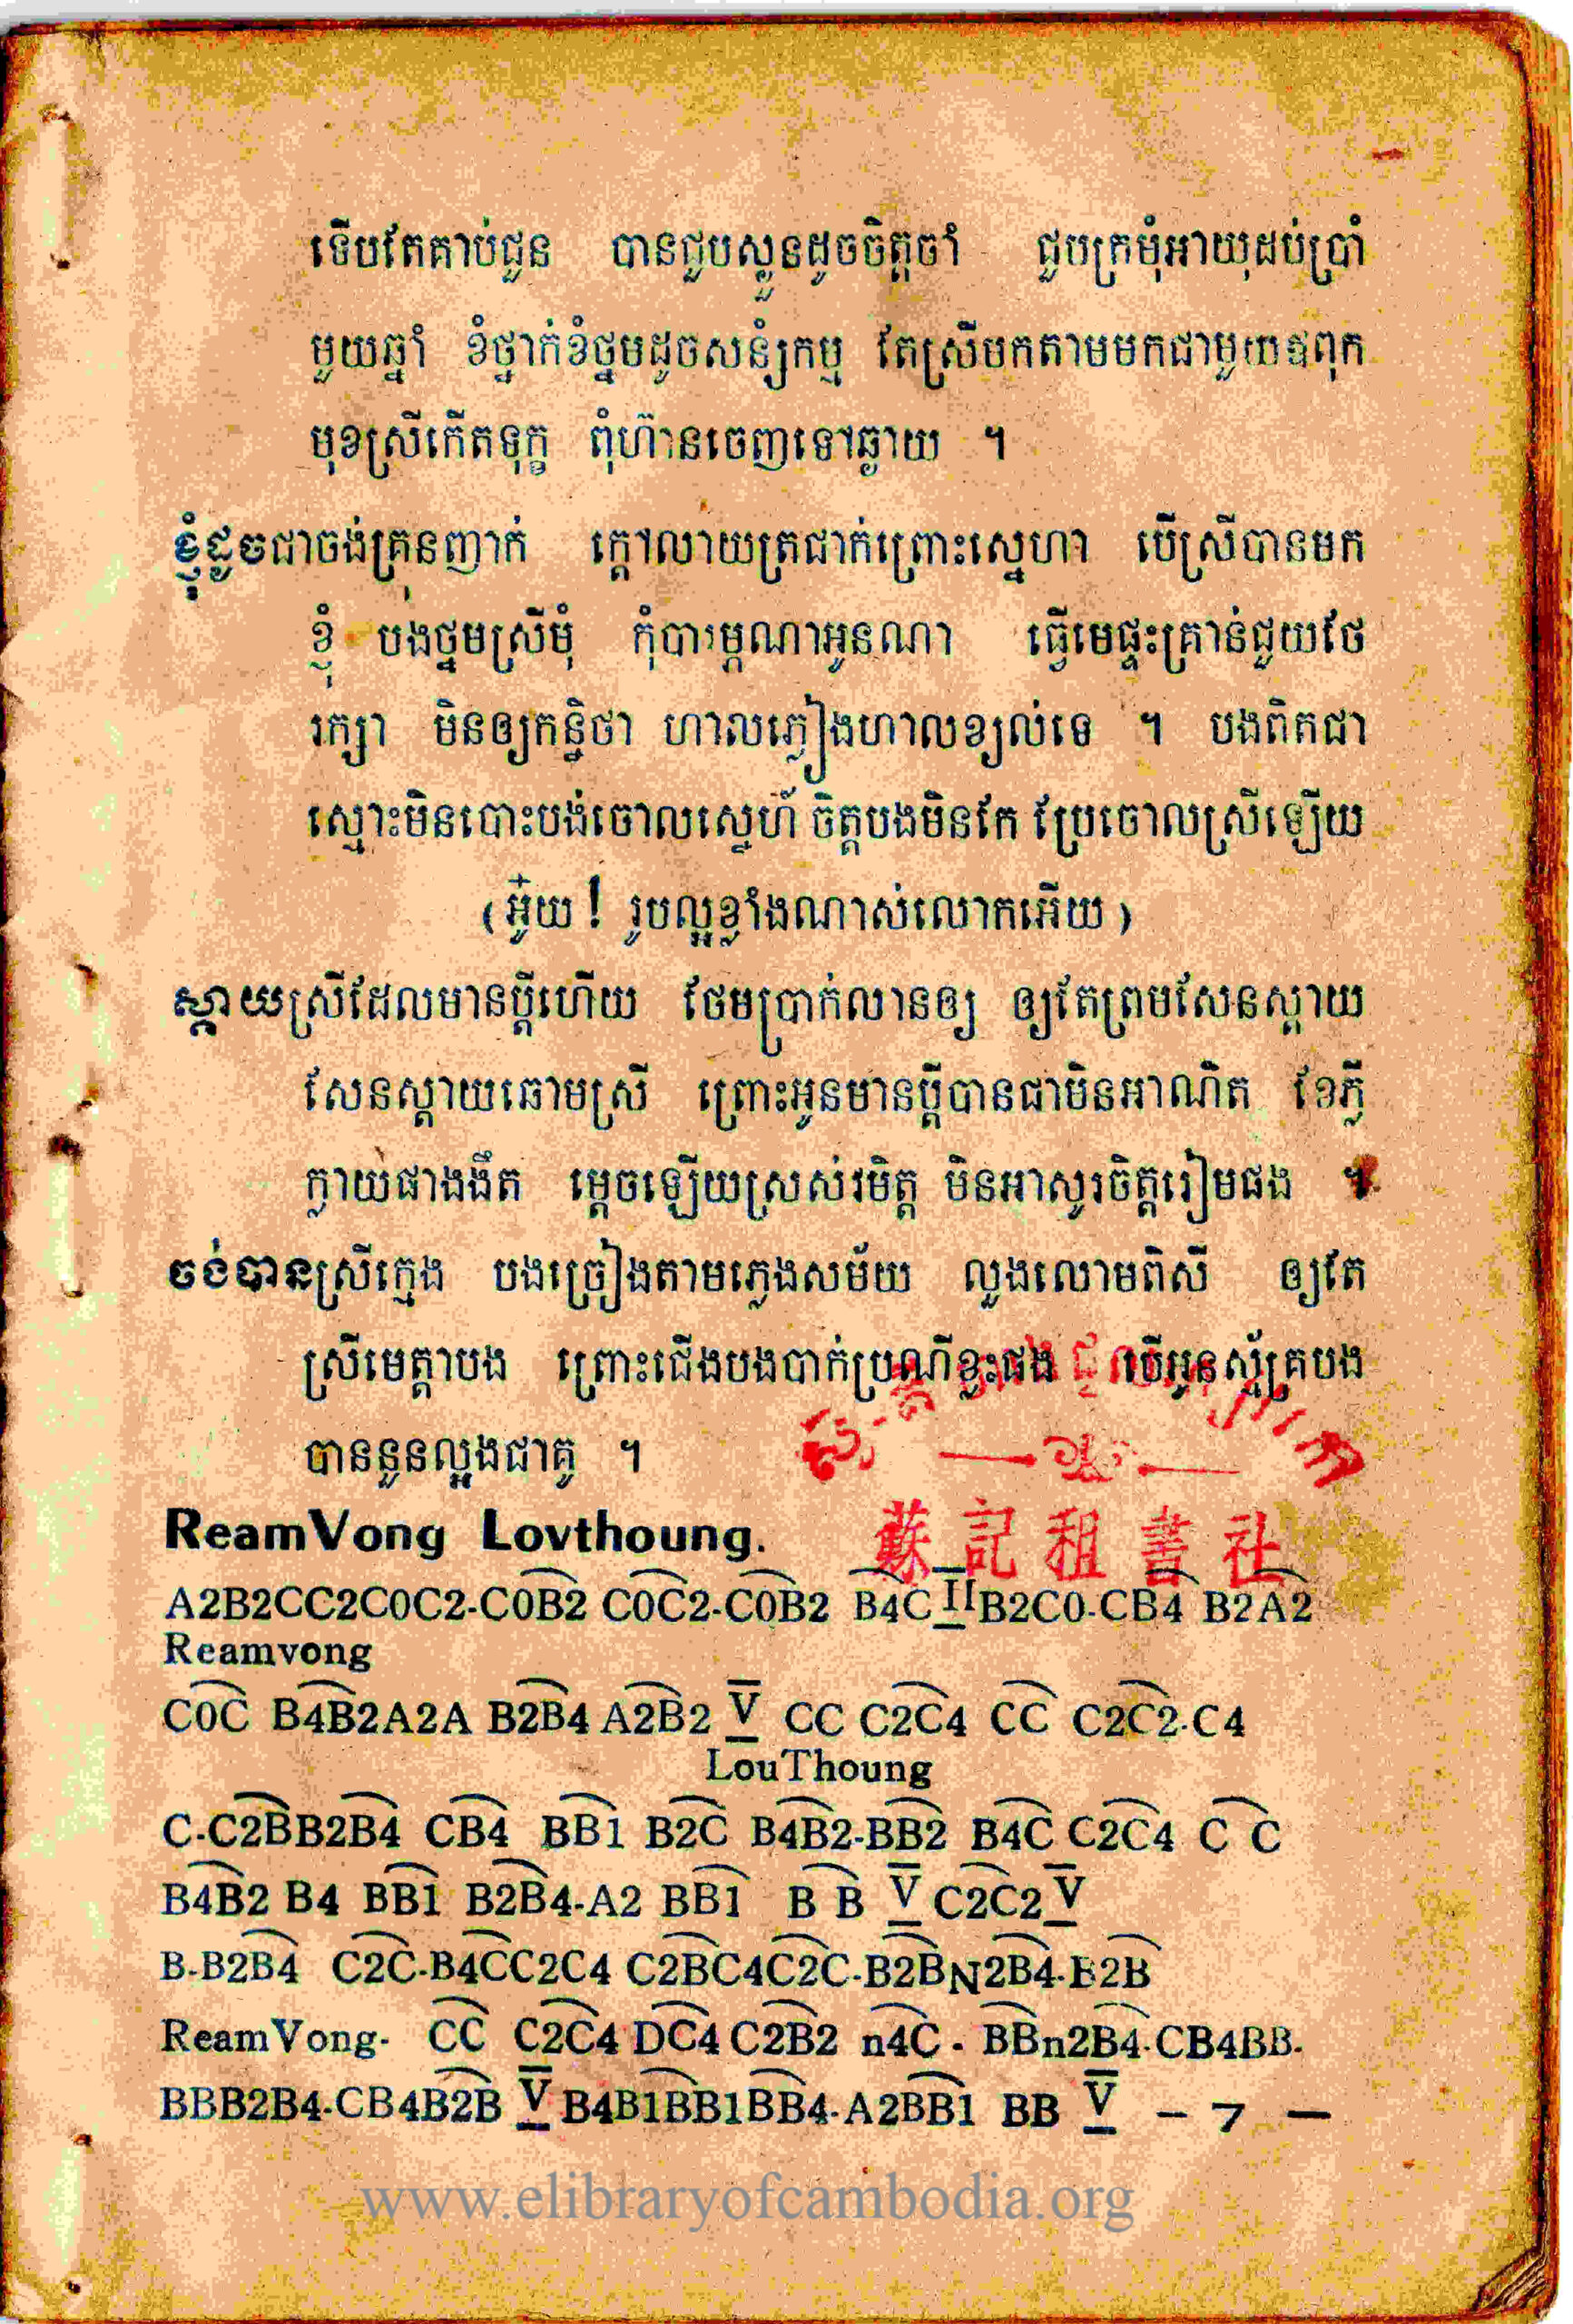 ទើបតែគាប់ជួន បានជួបសួនដូចចិត្តចាំ ជួបក្រមុំអាយុដប់ប្រាំ
មួយឆ្នាំ ខំថ្នាក់ខំថ្នមដូចសន្សំកម្ម តែស្រីមកតាមមកជាមួយឪពុក
មុខស្រីកើតទុក្ខ ពុំហ៊ានចេញទៅឆ្ងាយ ។
ខ្ញុំដូចជាចង់គ្រុនញាក់ ក្ដៅលាយត្រជាក់ព្រោះស្នេហា បើស្រីបានមក
ខ្ញុំ បងថ្នមស្រីមុំ កុំបារម្ភណាអូនណា ធ្វើមេផ្ទះគ្រាន់ជួយថែ
រក្សា មិនឲ្យកន្និថា ហាលភ្លៀងហាលខ្យល់ទេ ។ បងពិតជា
ស្មោះមិនបោះបង់ចោលស្នេហ៍ ចិត្តបងមិនកែ ប្រែចោលស្រីឡើយ
(អ៊ូយ! រូបល្អខ្លាំងណាស់លោកអើយ)
ស្ដាយស្រីដែលមានប្ដីហើយ ថែមប្រាក់លានឲ្យ ឲ្យតែព្រមសែនស្ដាយ
សែនស្ដាយឆោមស្រី ព្រោះអូនមានប្ដីបានជាមិនអាណិត ខែភ្លឺ
ក្លាយជាងងឹត ម្ដេចឡើយស្រស់រមិត្ត មិនអាសូរចិត្តរៀមផង ។
ចង់បានស្រីក្មេង បងច្រៀងតាមភ្លេងសម័យ លួងលោមពិសី ឲ្យតែ
ស្រីមេត្តាបង ព្រោះជើងបងបាក់ប្រណីខ្លះផង បើអូនស្ម័គ្របង
បាននួនល្អងជាគូ ។
ReamVong Lovthoung.
蘇記租書社
A2B2CC2C0C2-C0B2 C0C2-C0B2 B4C II B2C0-CB4 B2A2
Reamvong
C0C B4B2A2A B2B4 A2B2 V CC C2C4 CC C2C2-C4
LouThoung
C-C2BB2B4 CB4 BB1 B2C B4B2-BB2 B4C C2C4 C C
B4B2 B4 BB1 B2B4-A2 BB1 B B V C2C2 V
B-B2B4 C2C-B4CC2C4 C2BC4C2C-B2BN2B4-B2B
ReamVong- CC C2C4 DC4 C2B2 n4C - BBn2B4-CB4BB-
BBB2B4-CB4B2B V B4B1BB1BB4-A2BB1 BB V – 7 –
www.elibraryofcambodia.org